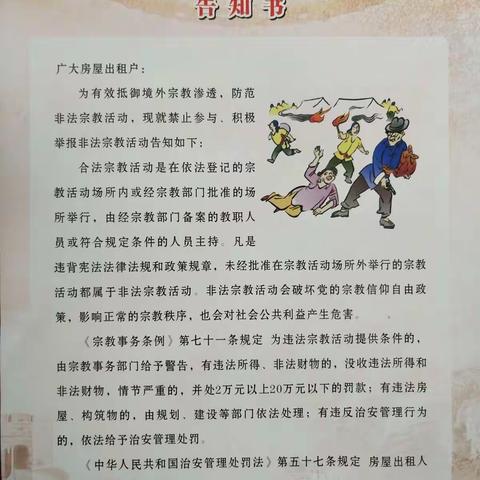 告知书
广大房屋出租户：
为有效抵御境外宗教渗透，防范
非法宗教活动，现就禁止参与、积极
举报非法宗教活动告知如下：
合法宗教活动是在依法登记的宗
教活动场所内或经宗教部门批准的场
所举行，由经宗教部门备案的教职人
员或符合规定条件的人员主持。凡是
违背宪法法律法规和政策规章，未经批准在宗教活动场所外举行的宗教
活动都属于非法宗教活动。非法宗教活动会破坏党的宗教信仰自由政
策，影响正常的宗教秩序，也会对社会公共利益产生危害。
《宗教事务条例》第七十一条规定 为违法宗教活动提供条件的，
由宗教事务部门给予警告，有违法所得、非法财物的，没收违法所得和
非法财物，情节严重的，并处2万元以上20万元以下的罚款；有违法房
屋、构筑物的，由规划、建设等部门依法处理；有违反治安管理行为
的，依法给予治安管理处罚。
《中华人民共和国治安管理处罚法》第五十七条规定 房屋出租人